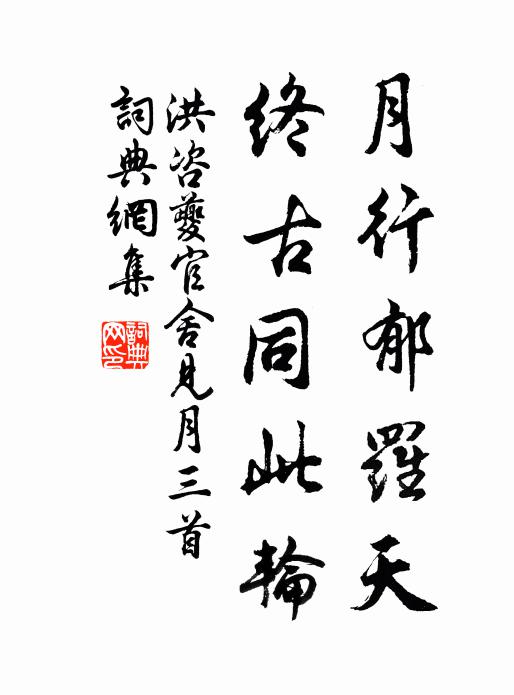 月行郁羅天
終古同此輪
洪咨夔官舍見月三首
詞典網集
詞典網印